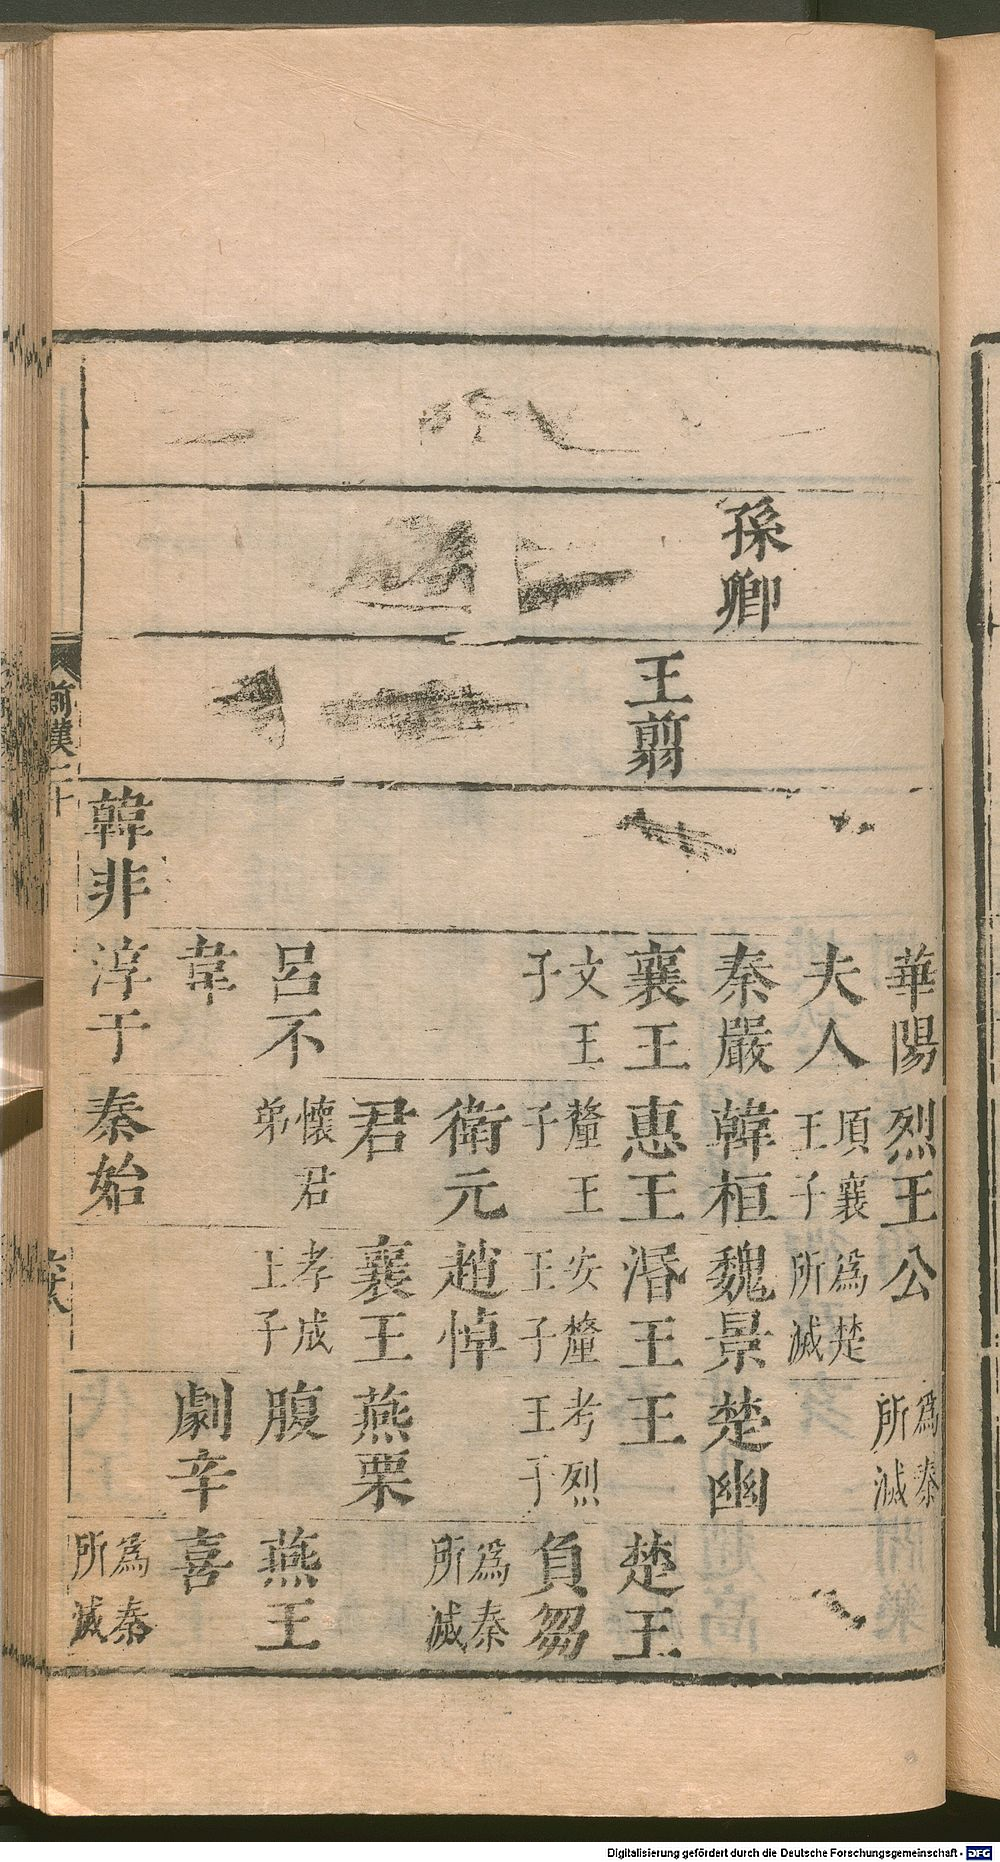 孫卿
王翦
韓非
華陽
夫人
秦嚴
襄王
文王
子
呂不
韋
淳于
烈王
項襄
王子
韓桓
惠王
釐王
子
衛元
君
懷君
弟
秦始
公
爲楚
所滅
魏景
湣王
安釐
王子
趙悼
襄王
孝成
王子
爲秦
所滅
楚幽
王
考烈
王子
燕栗
腹
劇辛
楚王
負芻
爲秦
所滅
燕王
喜
爲秦
所滅
前漢二十
Digitalisierung gefördert durch die Deutsche Forschungsgemeinschaft - DFG